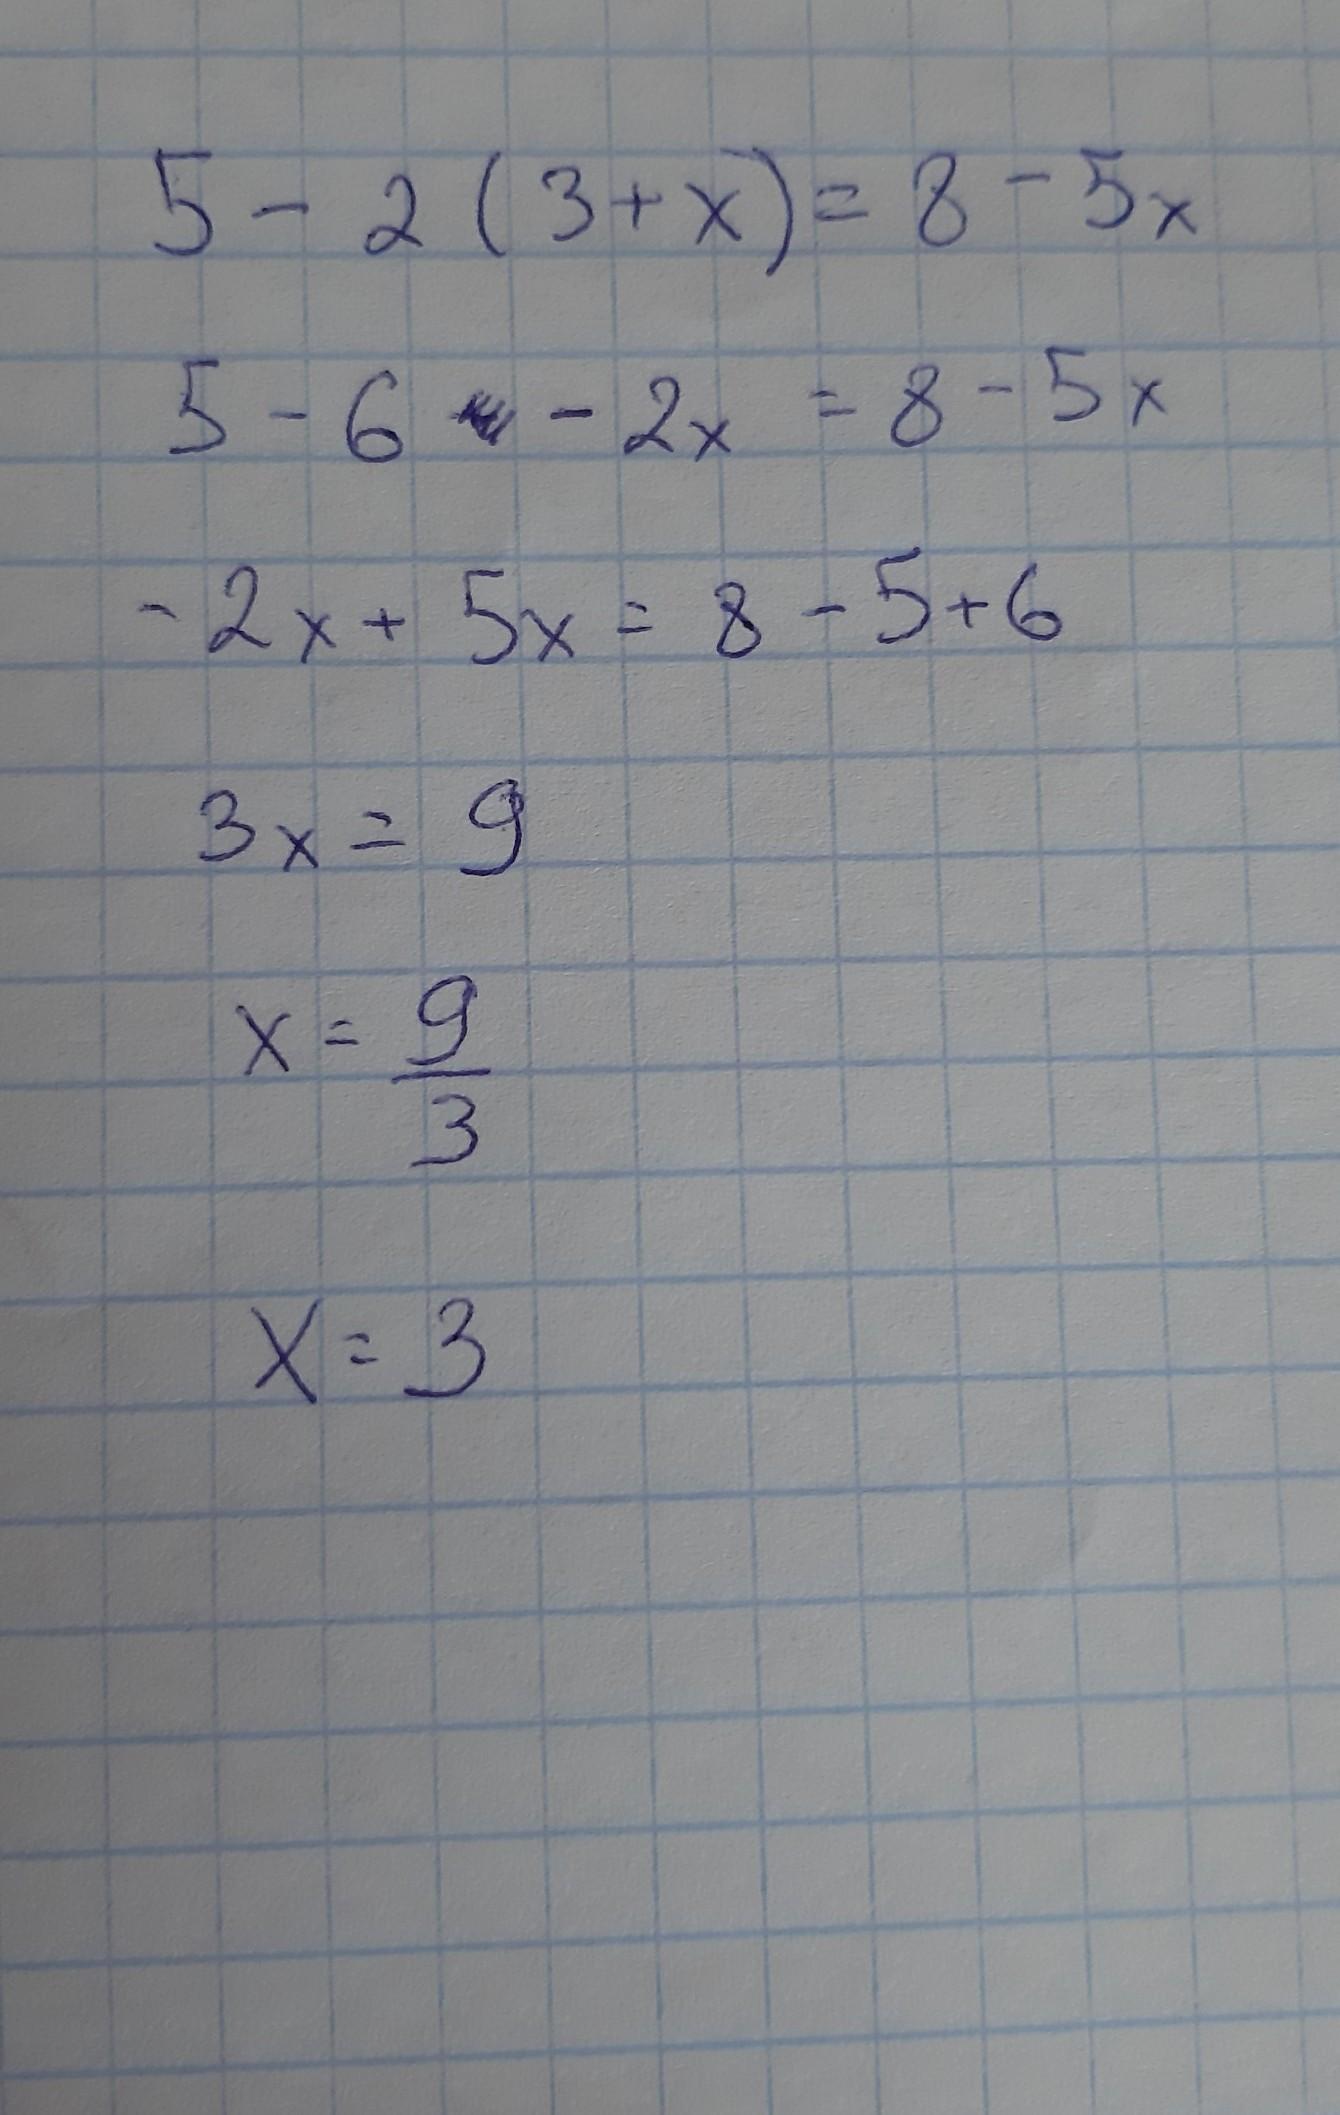 5 - 2 (3 + x) = 8 - 5x
5 - 6 - 2x = 8 - 5x
- 2x + 5x = 8 - 5 + 6
3x = 9
x = 9/3
x = 3